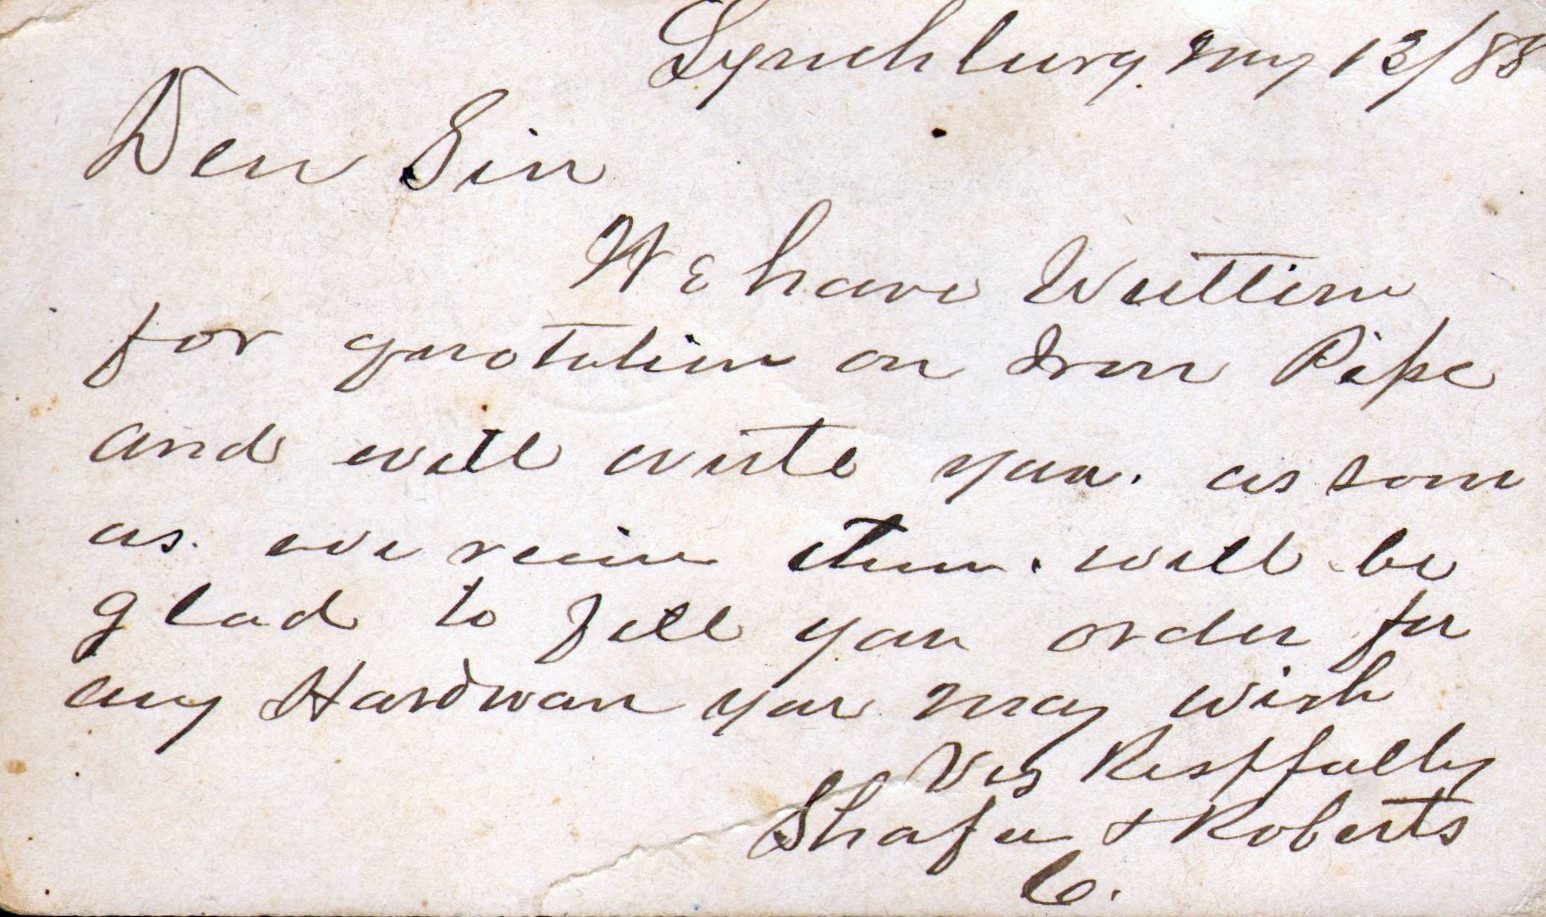 Lynchburg, May 13/88
Dear Sir
We have Written
for quotation on Iron Pipe
and will write you. as soon
as. we recive them. will be
glad to fill your order for
any Hardware you may wish
Very Respfully
Shafer & Roberts
C.